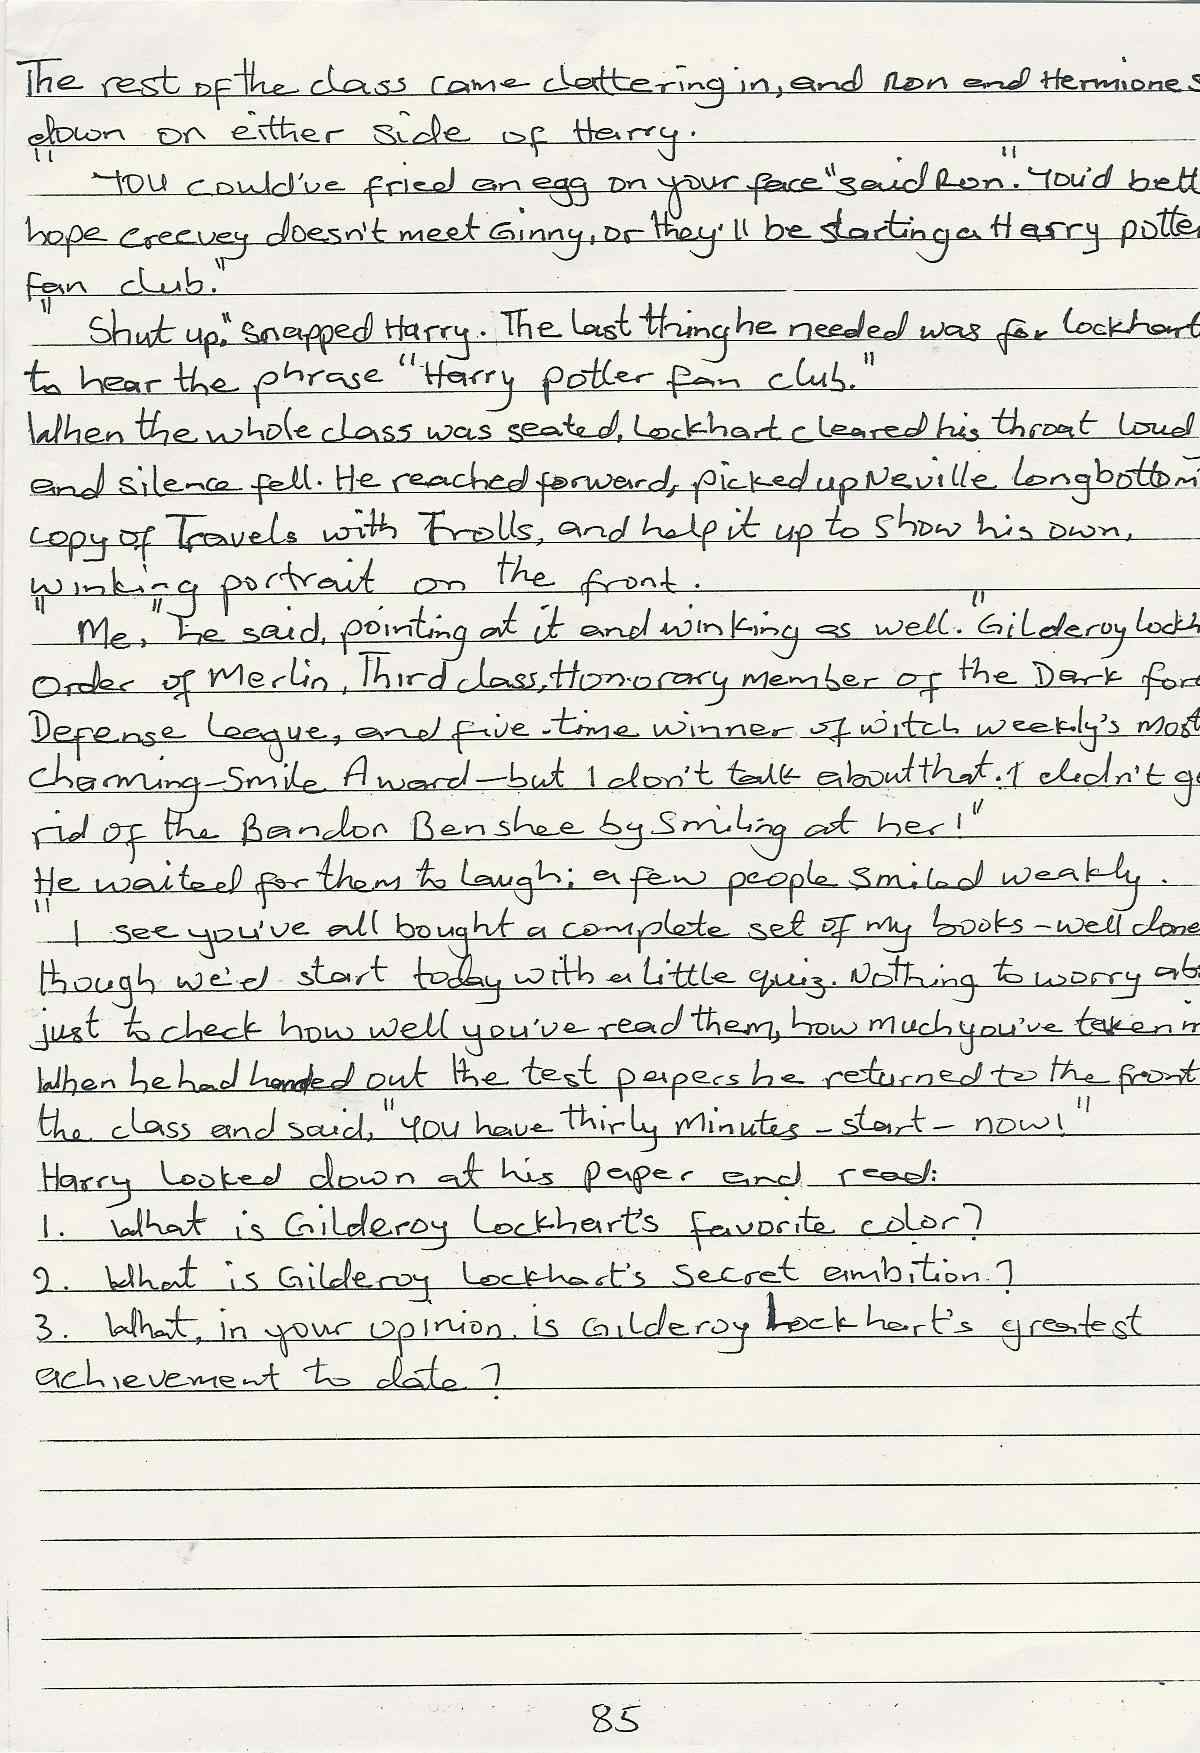 The rest of the class came clattering in, and Ron and Hermione s
down on either side of Harry.
"You could've fried an egg on your face" said Ron. "You'd bett
hope creevey doesn't meet Ginny, or they'll be starting a Harry potter
fan club."
"Shut up," snapped Harry. The last thing he needed was for lockhart
to hear the phrase "Harry potter fan club."
When the whole class was seated, Lockhart cleared his throat loud
and silence fell. He reached forward, picked up Neville longbottom
copy of Travels with Trolls, and help it up to show his own,
winking portrait on the front.
"Me," he said, pointing at it and winking as well. "Gilderoy lockh
Order of Merlin, Third class, Honorary member of the Dark for
Defense League, and five-time winner of witch weekly's most
charming-Smile Award-but I don't talk about that. I didn't ge
rid of the Bandon Benshee by smiling at her!"
He waited for them to laugh; a few people smiled weakly.
"I see you've all bought a complete set of my books-well done
though we'd start today with a little quiz. Nothing to worry ab
just to check how well you've read them, how much you've taken in
When he had handed out the test papers he returned to the front
the class and said, "You have thirly minutes-start-now!"
Harry looked down at his paper and read:
1. What is Gilderoy Lockhart's favorite color?
2. What is Gilderoy Lockhart's secret ambition?
3. What, in your opinion, is Gilderoy Lockhart's greatest
achievement to date?
85